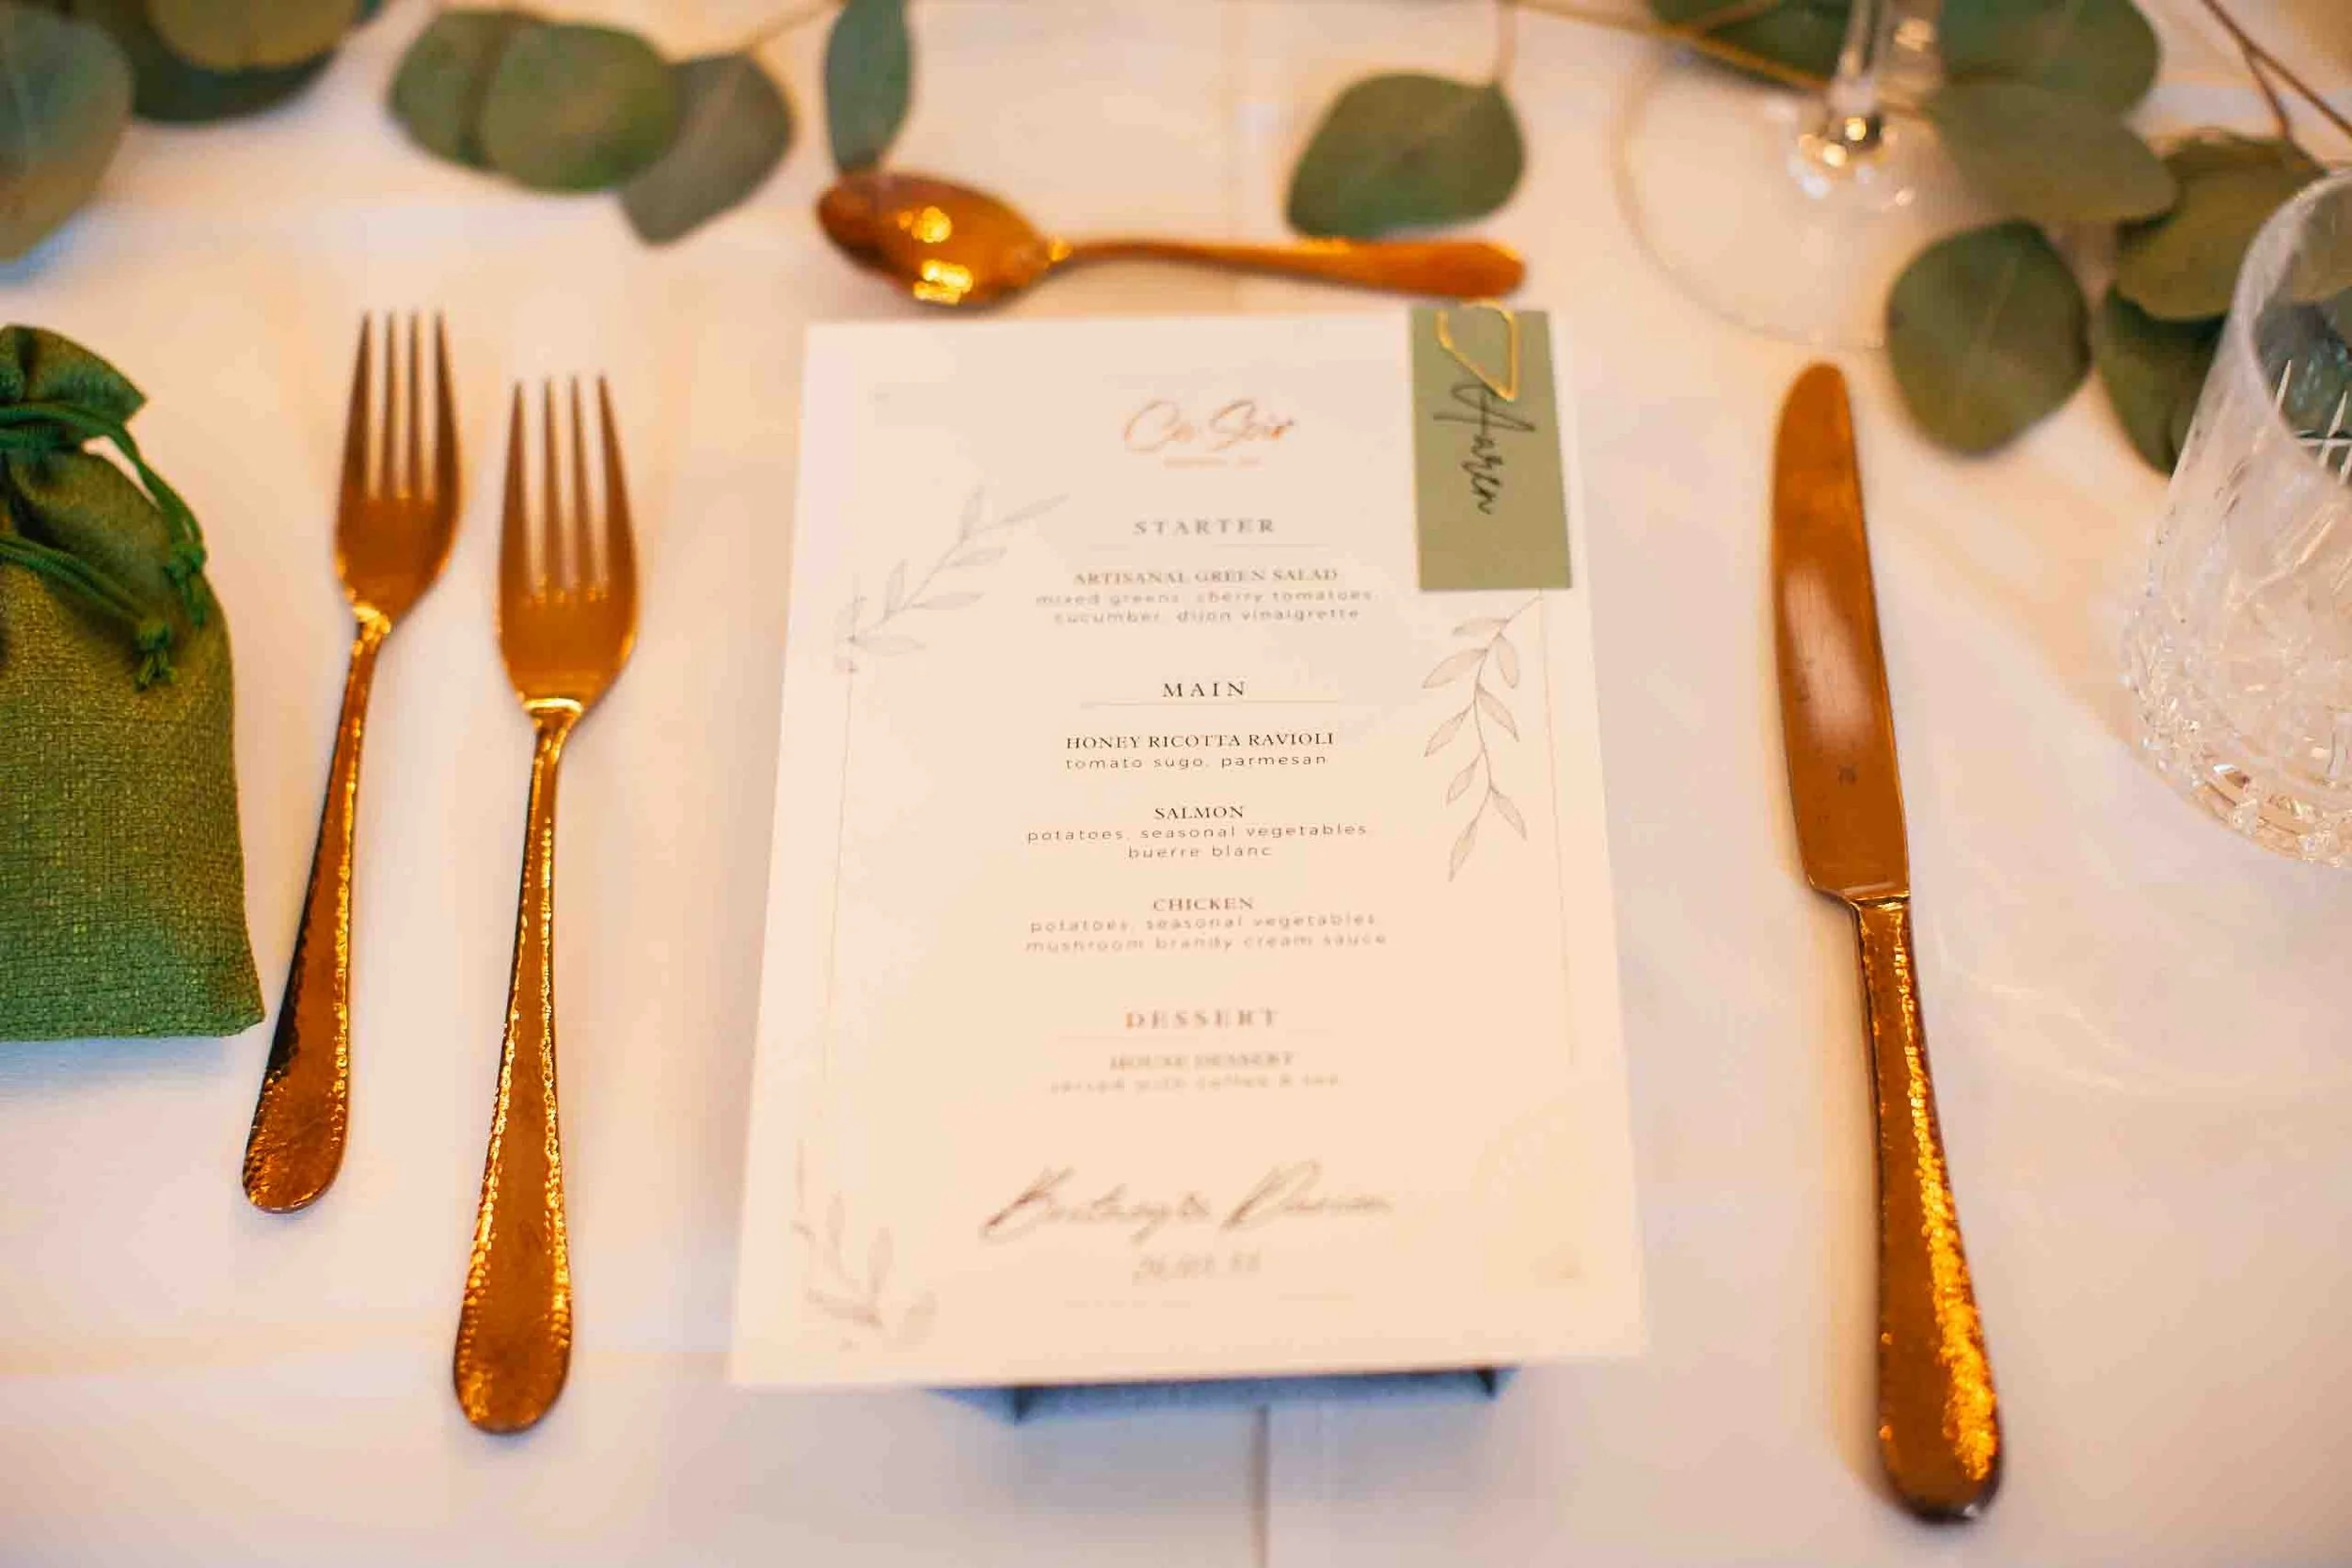 Ce Soir
Harren
STARTER
ARTISANAL GREEN SALAD
mixed greens, cherry tomatoes,
cucumber, dijon vinaigrette
MAIN
HONEY RICOTTA RAVIOLI
tomato sugo, parmesan
SALMON
potatoes, seasonal vegetables,
buerre blanc
CHICKEN
potatoes, seasonal vegetables,
mushroom brandy cream sauce
DESSERT
HOUSE DESSERT
served with coffee & tea